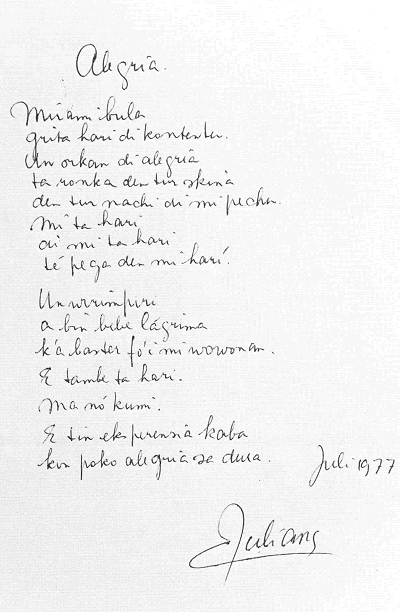 Alegria.
Mirami bula
grita hari di kontentu.
Un orkan di alegria
ta ronka den tur skina
den tur nachi di mi pechu.
Mi ta hari
di mi ta hari
té pega den mi harí.
Un wrimpiri
a bin bebe lágrima
k'a baster fo'i mi wowonan.
E tambe ta hari.
Ma nó kumi.
E tin eksperensia kaba
kon poko alegria sa dura.
Juli 1977